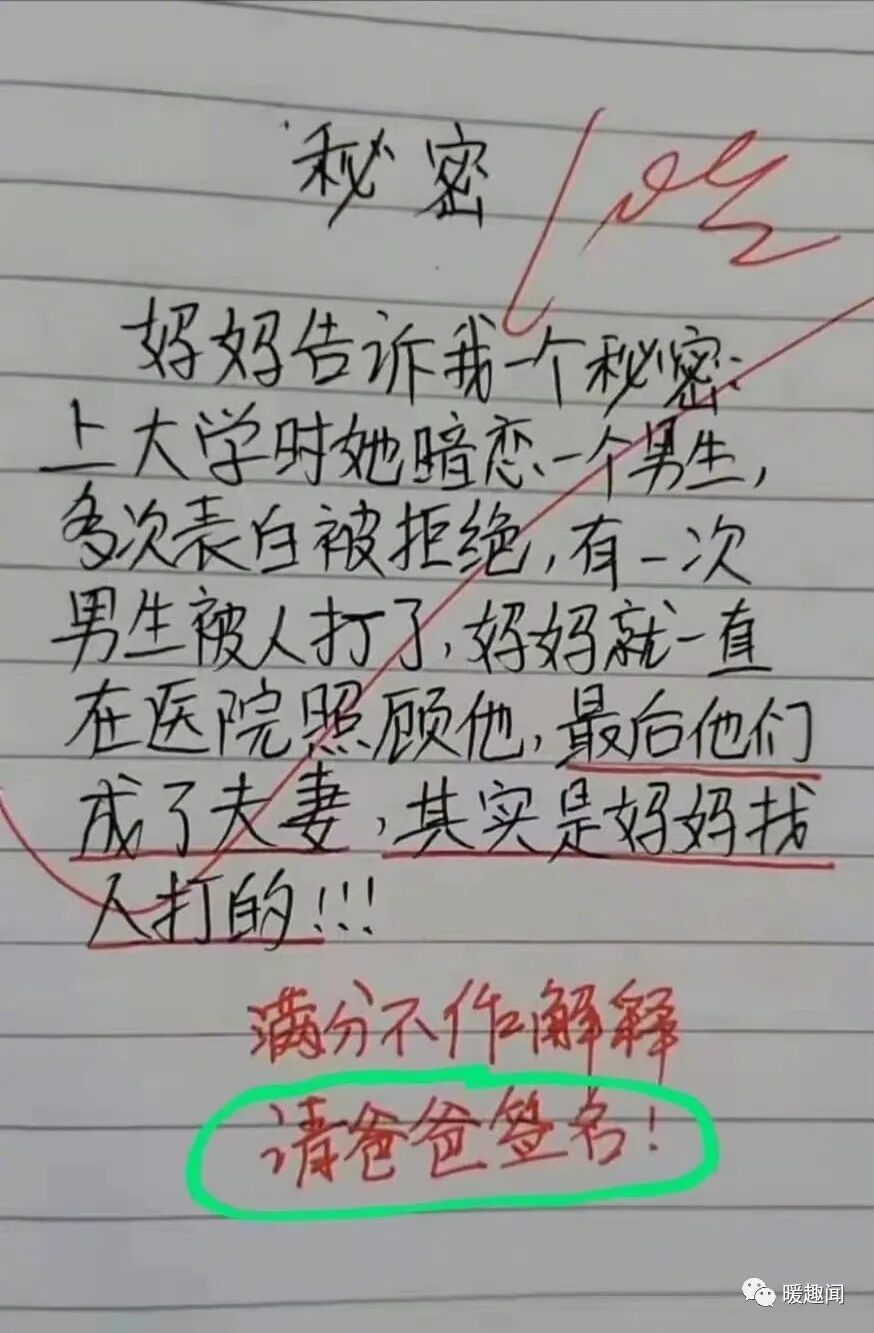 秘密
妈妈告诉我一个秘密:
上大学时她暗恋一个男生,
多次表白被拒绝,有一次
男生被人打了,妈妈就一直
在医院照顾他,最后他们
成了夫妻,其实是妈妈找
人打的!!!
满分不作解释
请爸爸签名!
暖趣闻